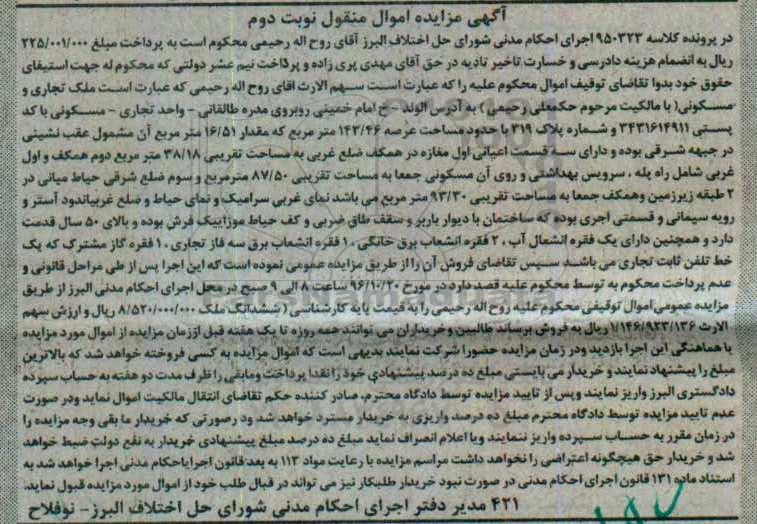 آگهی مزایده اموال منقول نوبت دوم
در پرونده کلاسه ۹۵۰۳۲۳ اجرای احکام مدنی شورای حل اختلاف البرز آقای روح اله رحیمی محکوم است به پرداخت مبلغ ۲۲۵/۰۰۱/۰۰۰
ریال به انضمام هزینه دادرسی و خسارت تاخیر تادیه در حق آقای مهدی پری زاده و پرداخت نیم عشر دولتی که محکوم له جهت استیفای
حقوق خود بدوا تقاضای توقیف اموال محکوم علیه را که عبارت است سهم الارث اقای روح اله رحیمی که عبارت است ملک تجاری و
مسکونی( با مالکیت مرحوم حکمعلی رحیمی ) به آدرس الوند - خ امام خمینی روبروی مدره طالقانی - واحد تجاری - مسکونی با کد
پستی ۳۴۳۱۶۱۴۹۱۱ و شماره پلاک ۳۱۹ با حدود مساحت عرصه ۱۴۳/۴۶ متر مربع که مقدار ۱۶/۵۱ متر مربع آن مشمول عقب نشینی
در جبهه شرقی بوده و دارای سه قسمت اعیانی اول مغازه در همکف ضلع غربی به مساحت تقریبی ۳۸/۱۸ متر مربع دوم همکف و اول
غربی شامل راه پله ، سرویس بهداشتی و روی آن مسکونی جمعا به مساحت تقریبی ۸۷/۵۰ مترمربع و سوم ضلع شرقی حیاط میانی در
۲ طبقه زیرزمین وهمکف جمعا به مساحت تقریبی ۹۳/۳۰ متر مربع می باشد نمای غربی سرامیک و نمای حیاط و ضلع غربیاندود آستر و
رویه سیمانی و قسمتی اجری بوده که ساختمان با دیوار باربر و سقف طاق ضربی و کف حیاط موزاییک فرش بوده و بالای ۵۰ سال قدمت
دارد و همچنین دارای یک فقره انشعال آب ، ۲ فقره انشعاب برق خانگی ، ۱ فقره انشعاب برق سه فاز تجاری ، ۱ فقره گاز مشترک که یک
خط تلفن ثابت تجاری می باشد سپس تقاضای فروش آن را از طریق مزایده عمومی نموده است که این اجرا پس از طی مراحل قانونی و
عدم پرداخت محکوم به توسط محکوم علیه قصد دارد در مورخ ۹۶/۱۰/۲۰ ساعت ۸ الی ۹ صبح در محل اجرای احکام مدنی البرز از طریق
مزایده عمومی اموال توقیفی محکوم علیه روح اله رحیمی را به قیمت پایه کارشناسی ( ششدانگ ملک ۸/۵۲۰/۰۰۰/۰۰۰ ریال و ارزش سهم
الارث ۱/۱۴۶/۹۲۳/۱۳۶ ریال به فروش برساند طالبین وخریداران می توانند همه روزه تا یک هفته قبل اززمان مزایده از اموال مورد مزایده
با هماهنگی این اجرا بازدید ودر زمان مزایده حضورا شرکت نمایند بدیهی است که اموال مزایده به کسی فروخته خواهد شد که بالاترین
مبلغ را پیشنهاد نمایند و خریدار می بایستی مبلغ ده درصد پیشنهادی خود را نقدا پرداخت ومابقی را ظرف مدت دو هفته به حساب سپرده
دادگستری البرز واریز نمایند وپس از تایید مزایده توسط دادگاه محترم، صادر کننده حکم تقاضای انتقال مالکیت اموال نماید ودر صورت
عدم تایید مزایده توسط دادگاه محترم مبلغ ده درصد واریزی به خریدار مسترد خواهد شد ود رصورتی که خریدار ما بقی وجه مزایده را
در زمان مقرر به حساب سپرده واریز ننمایند ویا اعلام انصراف نماید مبلغ ده درصد مبلغ پیشنهادی خریدار به نفع دولت ضبط خواهد
شد و خریدار حق هیچگونه اعتراضی را نخواهد داشت مراسم مزایده با رعایت مواد ۱۱۳ به بعد قانون اجرایاحکام مدنی اجرا خواهد شد به
استناد ماده ۱۳۱ قانون اجرای احکام مدنی در صورت نبود خریدار طلبکار نیز می تواند در قبال طلب خود از اموال مورد مزایده قبول نماید.
۴۲۱ مدیر دفتر اجرای احکام مدنی شورای حل اختلاف البرز - نوفلاح